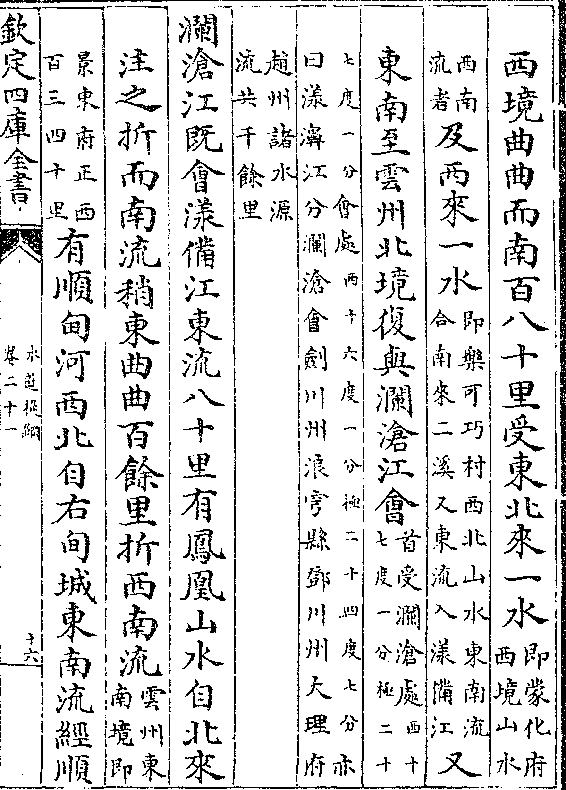 西境曲曲而南百八十里受東北來一水即蒙化府西境山水
西南流者及西來一水即樂可巧村西北山水東南流合南來二溪又東流入漾備江又
東南至雲州北境復與瀾滄江會首受瀾滄處西十七度一分極二十
七度一分會處西十六度一分極二十四度七分亦曰漾濞江分瀾滄會劍川州浪穹縣鄧川州大理府
趙州諸水源流共千餘里
瀾滄江既會漾備江東流八十里有鳳凰山水自北來
注之折而南流稍東曲曲百餘里折西南流雲州東南境即
景東府正西百三四十里有順甸河西北自右甸城東南流經順
欽定四庫全書
水道提綱
卷二十一
十六